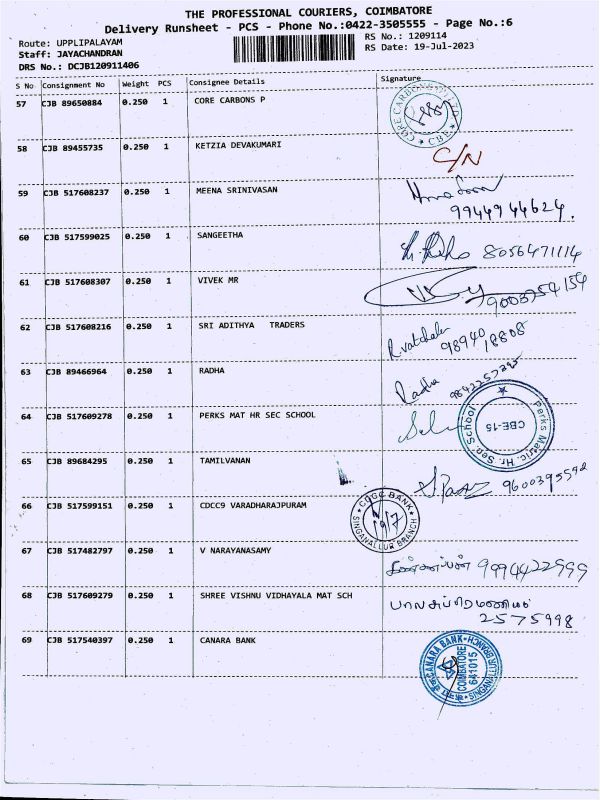 THE PROFESSIONAL COURIERS, COIMBATORE
Delivery Runsheet - PCS - Phone No.:0422-3505555 - Page No.:6
Route: UPPLIPALAYAM
RS No.: 1209114
Staff: JAYACHANDRAN
RS Date: 19-Jul-2023
DRS No.: DCJB120911406
S No Consignment No Weight PCS Consignee Details Signature
57 CJB 89650884 0.250 1 CORE CARBONS P
58 CJB 89455735 0.250 1 KETZIA DEVAKUMARI C/N
59 CJB 517608237 0.250 1 MEENA SRINIVASAN
9944944624.
60 CJB 517599025 0.250 1 SANGEETHA 8056471114
61 CJB 517608307 0.250 1 VIVEK MR
62 CJB 517608216 0.250 1 SRI ADITHYA TRADERS
98940 18808
63 CJB 89466964 0.250 1 RADHA Radha
64 CJB 517609278 0.250 1 PERKS MAT HR SEC SCHOOL
Perks Matric. Hr. Sec. School
CBE-15
65 CJB 89684295 0.250 1 TAMILVANAN
66 CJB 517599151 0.250 1 CDCC9 VARADHARAJPURAM
SINGANALLUR BRANCH
19/7
67 CJB 517482797 0.250 1 V NARAYANASAMY 9994422999
68 CJB 517609279 0.250 1 SHREE VISHNU VIDHAYALA MAT SCH
பாலசுப்பிரமணியம்
2575998
69 CJB 517540397 0.250 1 CANARA BANK
CANARA BANK
SINGANALLUR BRANCH
COIMBATORE
641015